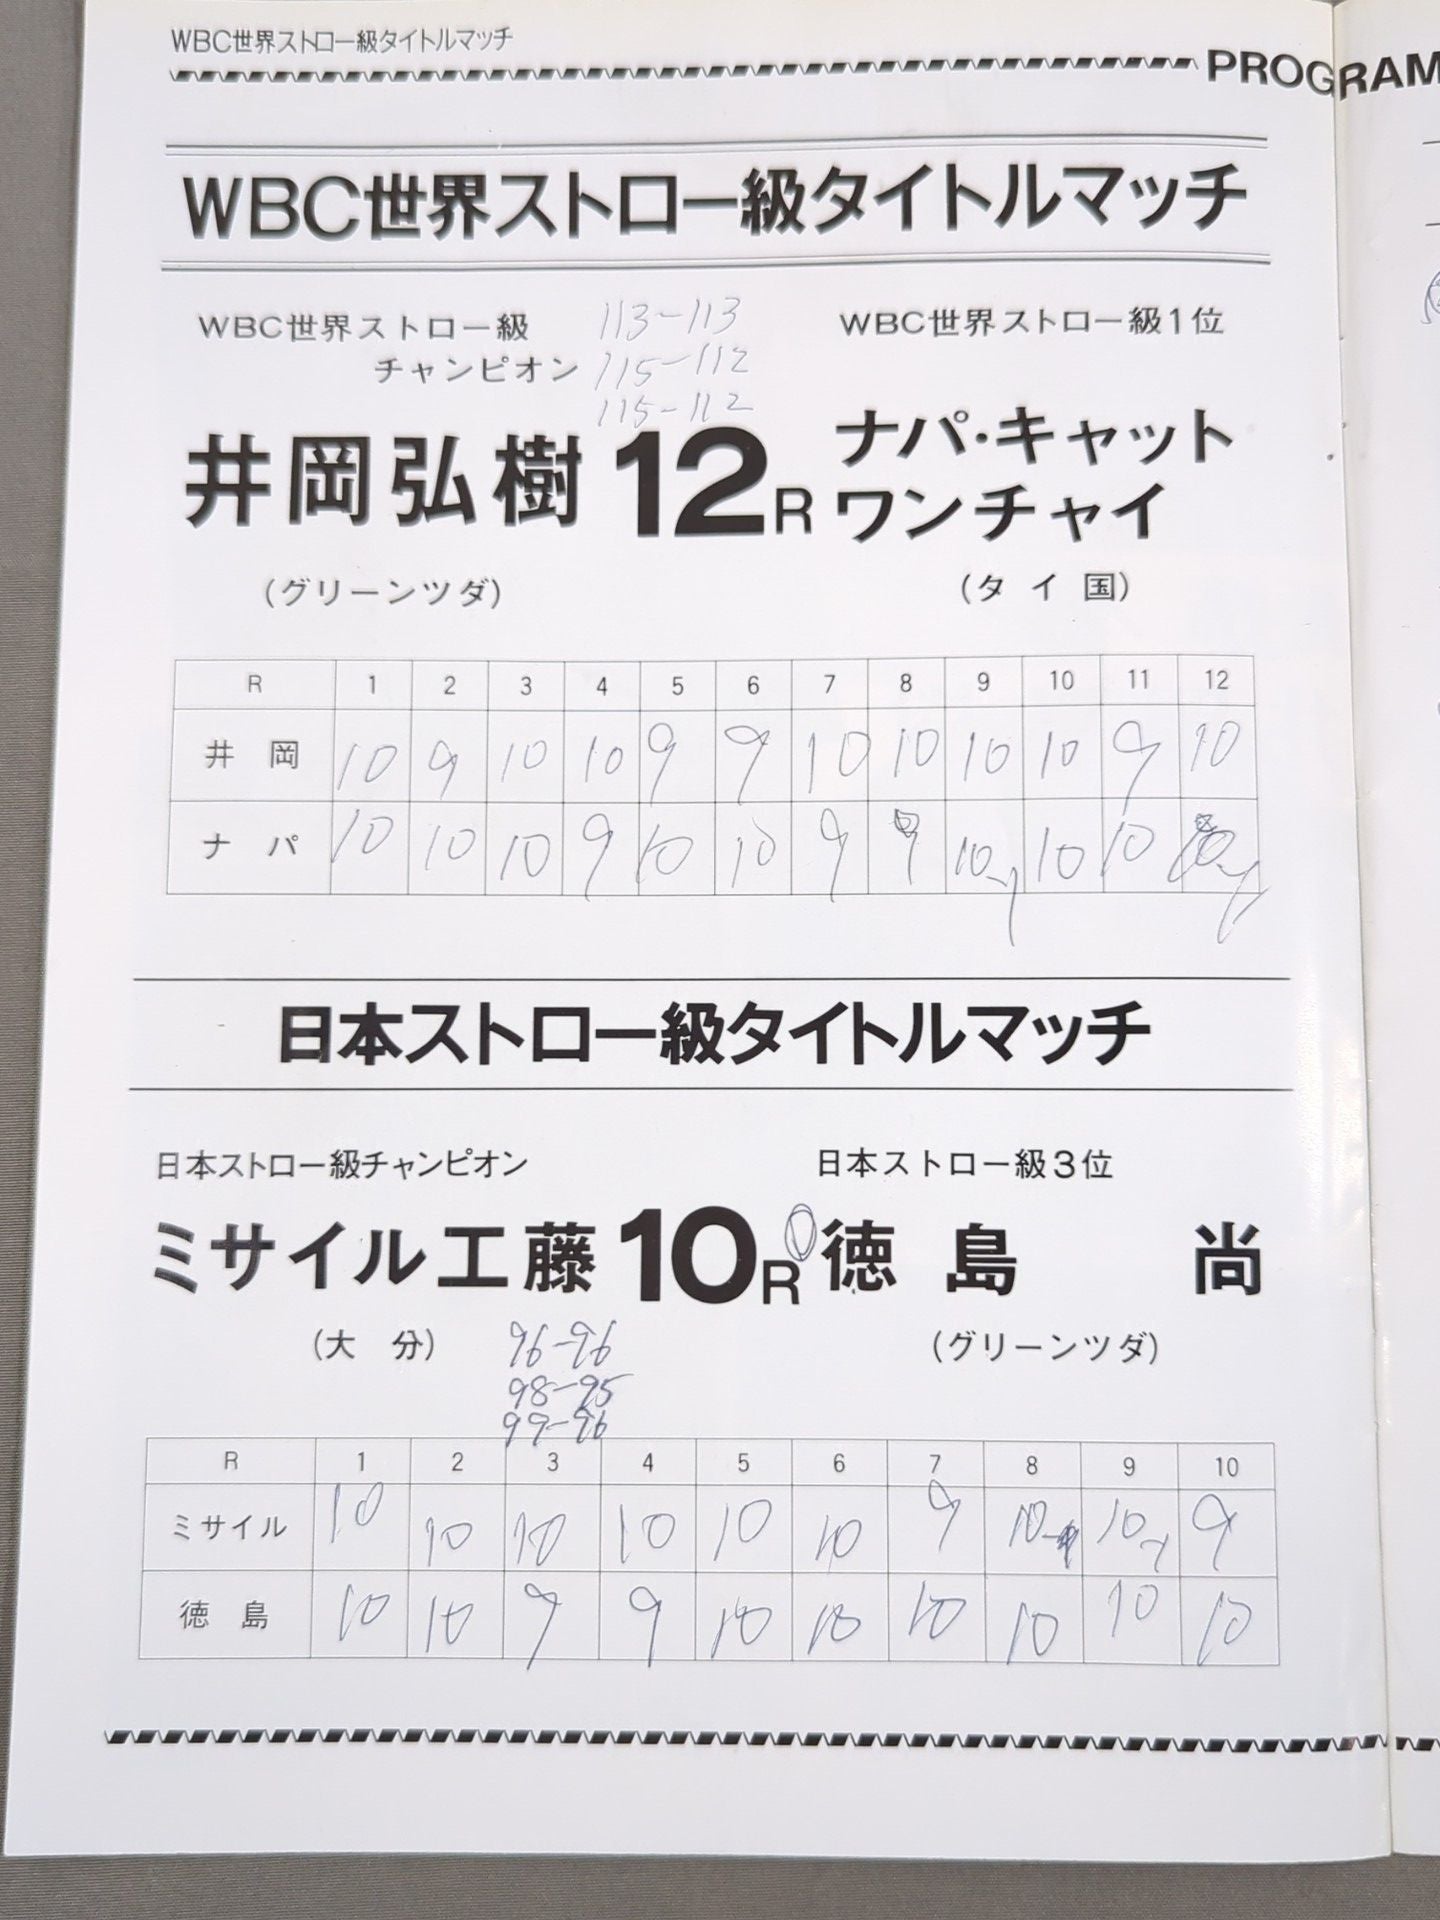 WBC世界ストロー級タイトルマッチ
PROGRAM
WBC世界ストロー級タイトルマッチ
WBC世界ストロー級
チャンピオン
113-113
115-112
115-112
WBC世界ストロー級1位
井岡弘樹 12R ナパ・キャット
ワンチャイ
(グリーンツダ) (タイ国)
R 1 2 3 4 5 6 7 8 9 10 11 12
井岡 10 9 10 10 9 9 10 10 10 10 9 10
ナパ 10 10 10 9 10 10 9 9 10-1 10 10
日本ストロー級タイトルマッチ
日本ストロー級チャンピオン 日本ストロー級3位
ミサイル工藤 10R 徳島 尚
(大分) (グリーンツダ)
96-96
98-95
99-96
R 1 2 3 4 5 6 7 8 9 10
ミサイル 10 10 10 10 10 10 9 10 10-1 9
徳島 10 10 9 9 10 10 10 10 10 10